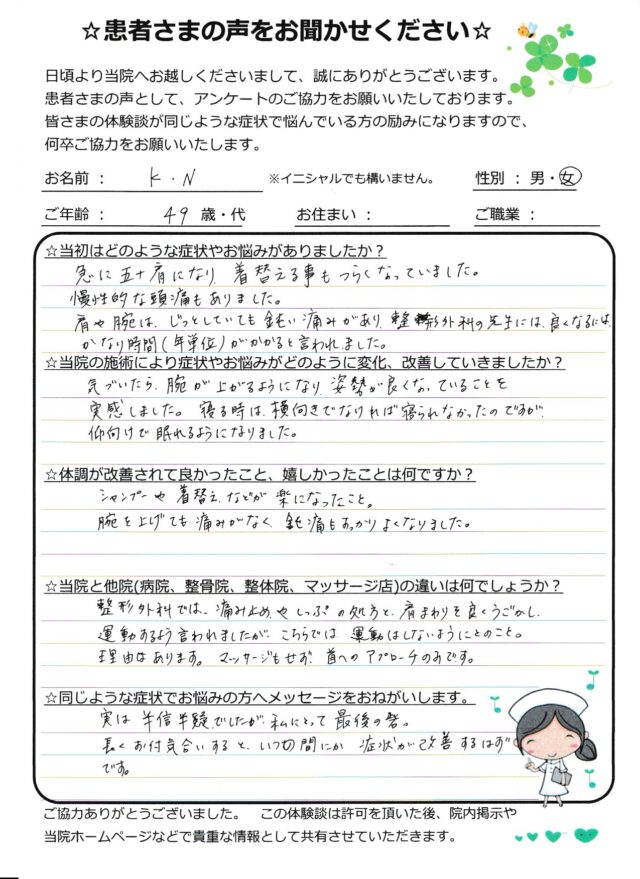 ☆患者さまの声をお聞かせください☆
日頃より当院へお越しくださいまして、誠にありがとうございます。
患者さまの声として、アンケートのご協力をお願いいたしております。
皆さまの体験談が同じような症状で悩んでいる方の励みになりますので、
何卒ご協力をお願いいたします。
お名前： K・N ※イニシャルでも構いません。 性別：男・女
ご年齢： 49 歳・代 お住まい： ご職業：
☆当初はどのような症状やお悩みがありましたか？
急に五十肩になり 着替える事もつらくなっていました。
慢性的な頭痛もありました。
肩や腕は、じっとしていても鈍い痛みがあり、整形外科の先生には、良くなるには、
かなり時間(年単位)がかかると言われました。
☆当院の施術により症状やお悩みがどのように変化、改善していきましたか？
気づいたら、腕が上がるようになり 姿勢が良くなっていることを
実感しました。寝る時は、横向きでなければ寝られなかったのですが
仰向けで眠れるようになりました。
☆体調が改善されて良かったこと、嬉しかったことは何ですか？
シャンプーや着替えなどが楽になったこと。
腕を上げても痛みがなく、鈍痛もすっかりよくなりました。
☆当院と他院(病院、整骨院、整体院、マッサージ店)の違いは何でしょうか？
整形外科では、痛み止めやしっぷの処方と、肩まわりを良くうごかし、
運動するよう言われましたが、こちらでは 運動はしないようにとのこと。
理由はあります。マッサージもせず 首へのアプローチのみです。
☆同じような症状でお悩みの方へメッセージをおねがいします。
実は 半信半疑でしたが 私にとって最後の砦。
長くお付気合いすると、いつの間にか 症状が改善するはず
です。
ご協力ありがとうございました。 この体験談は許可を頂いた後、院内掲示や
当院ホームページなどで貴重な情報として共有させていただきます。